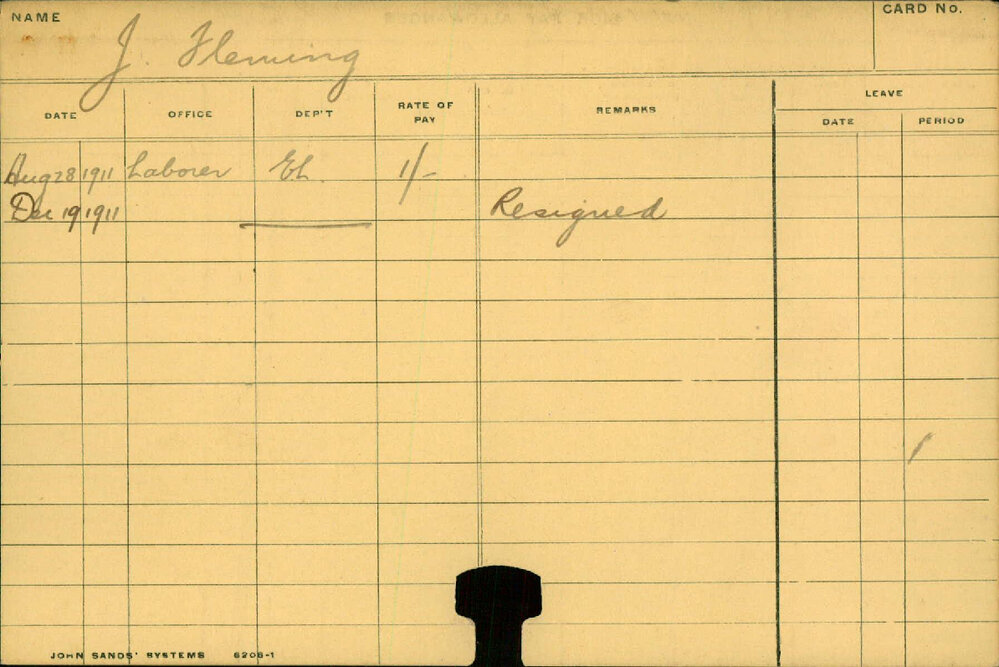 NAME
CARD No.
J. Fleming
LEAVE
DATE OFFICE DEP'T RATE OF PAY REMARKS DATE PERIOD
Aug 28 1911 Laborer EL. 1/-
Dec 19 1911 Resigned
JOHN SANDS' SYSTEMS 6206-1